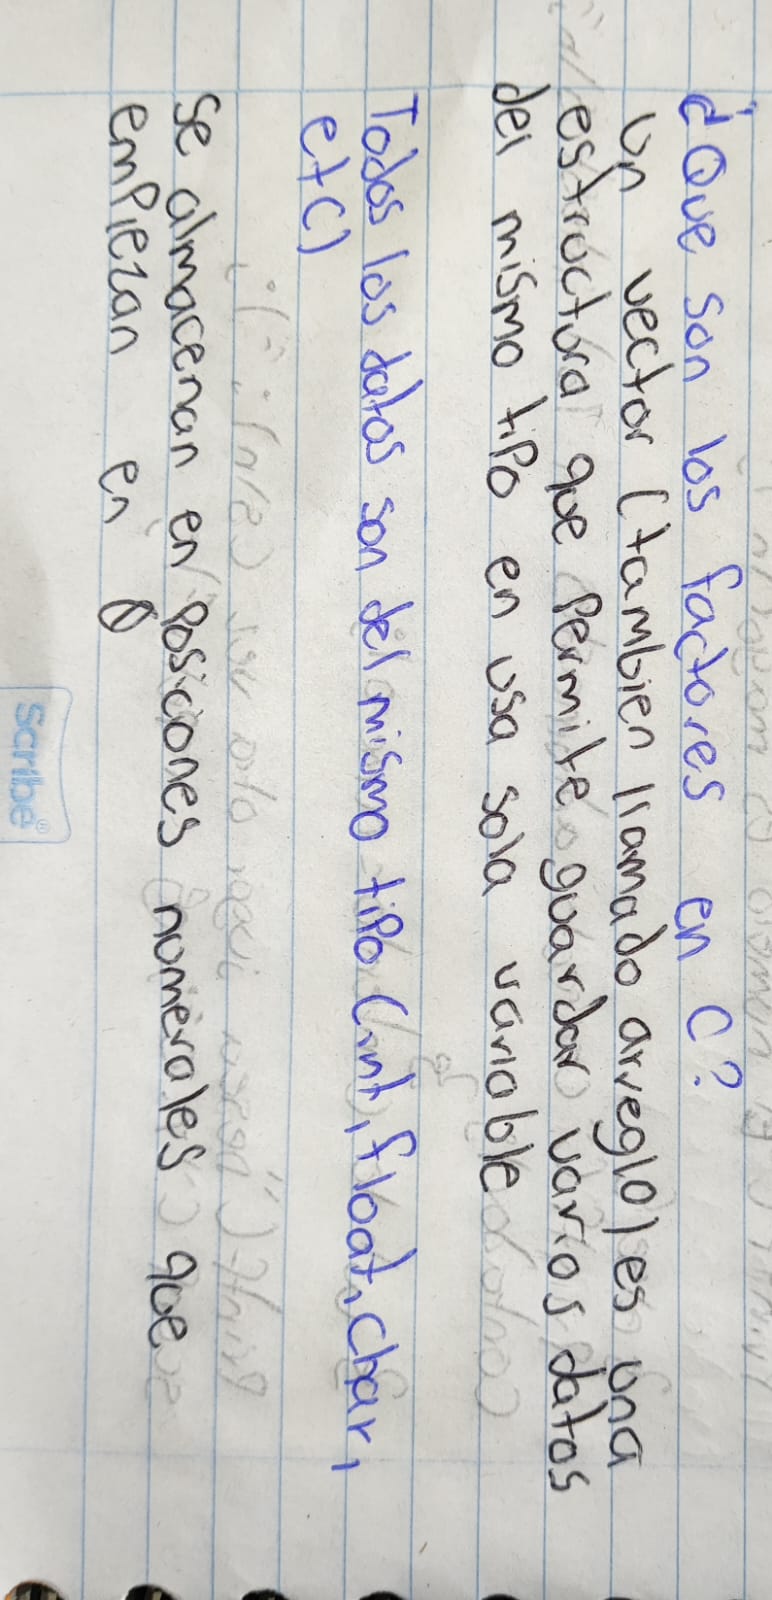 ¿Que son los factores en C?
Un vector (tambien llamado arreglo) es una
estructura que Permite guardar varios datos
del mismo tiPo en usa sola variable
Todos los datos son del mismo tiPo (int, float, char,
etc)
Se almacenan en Posiciones numerales que
emPiezan en 0
Scribe